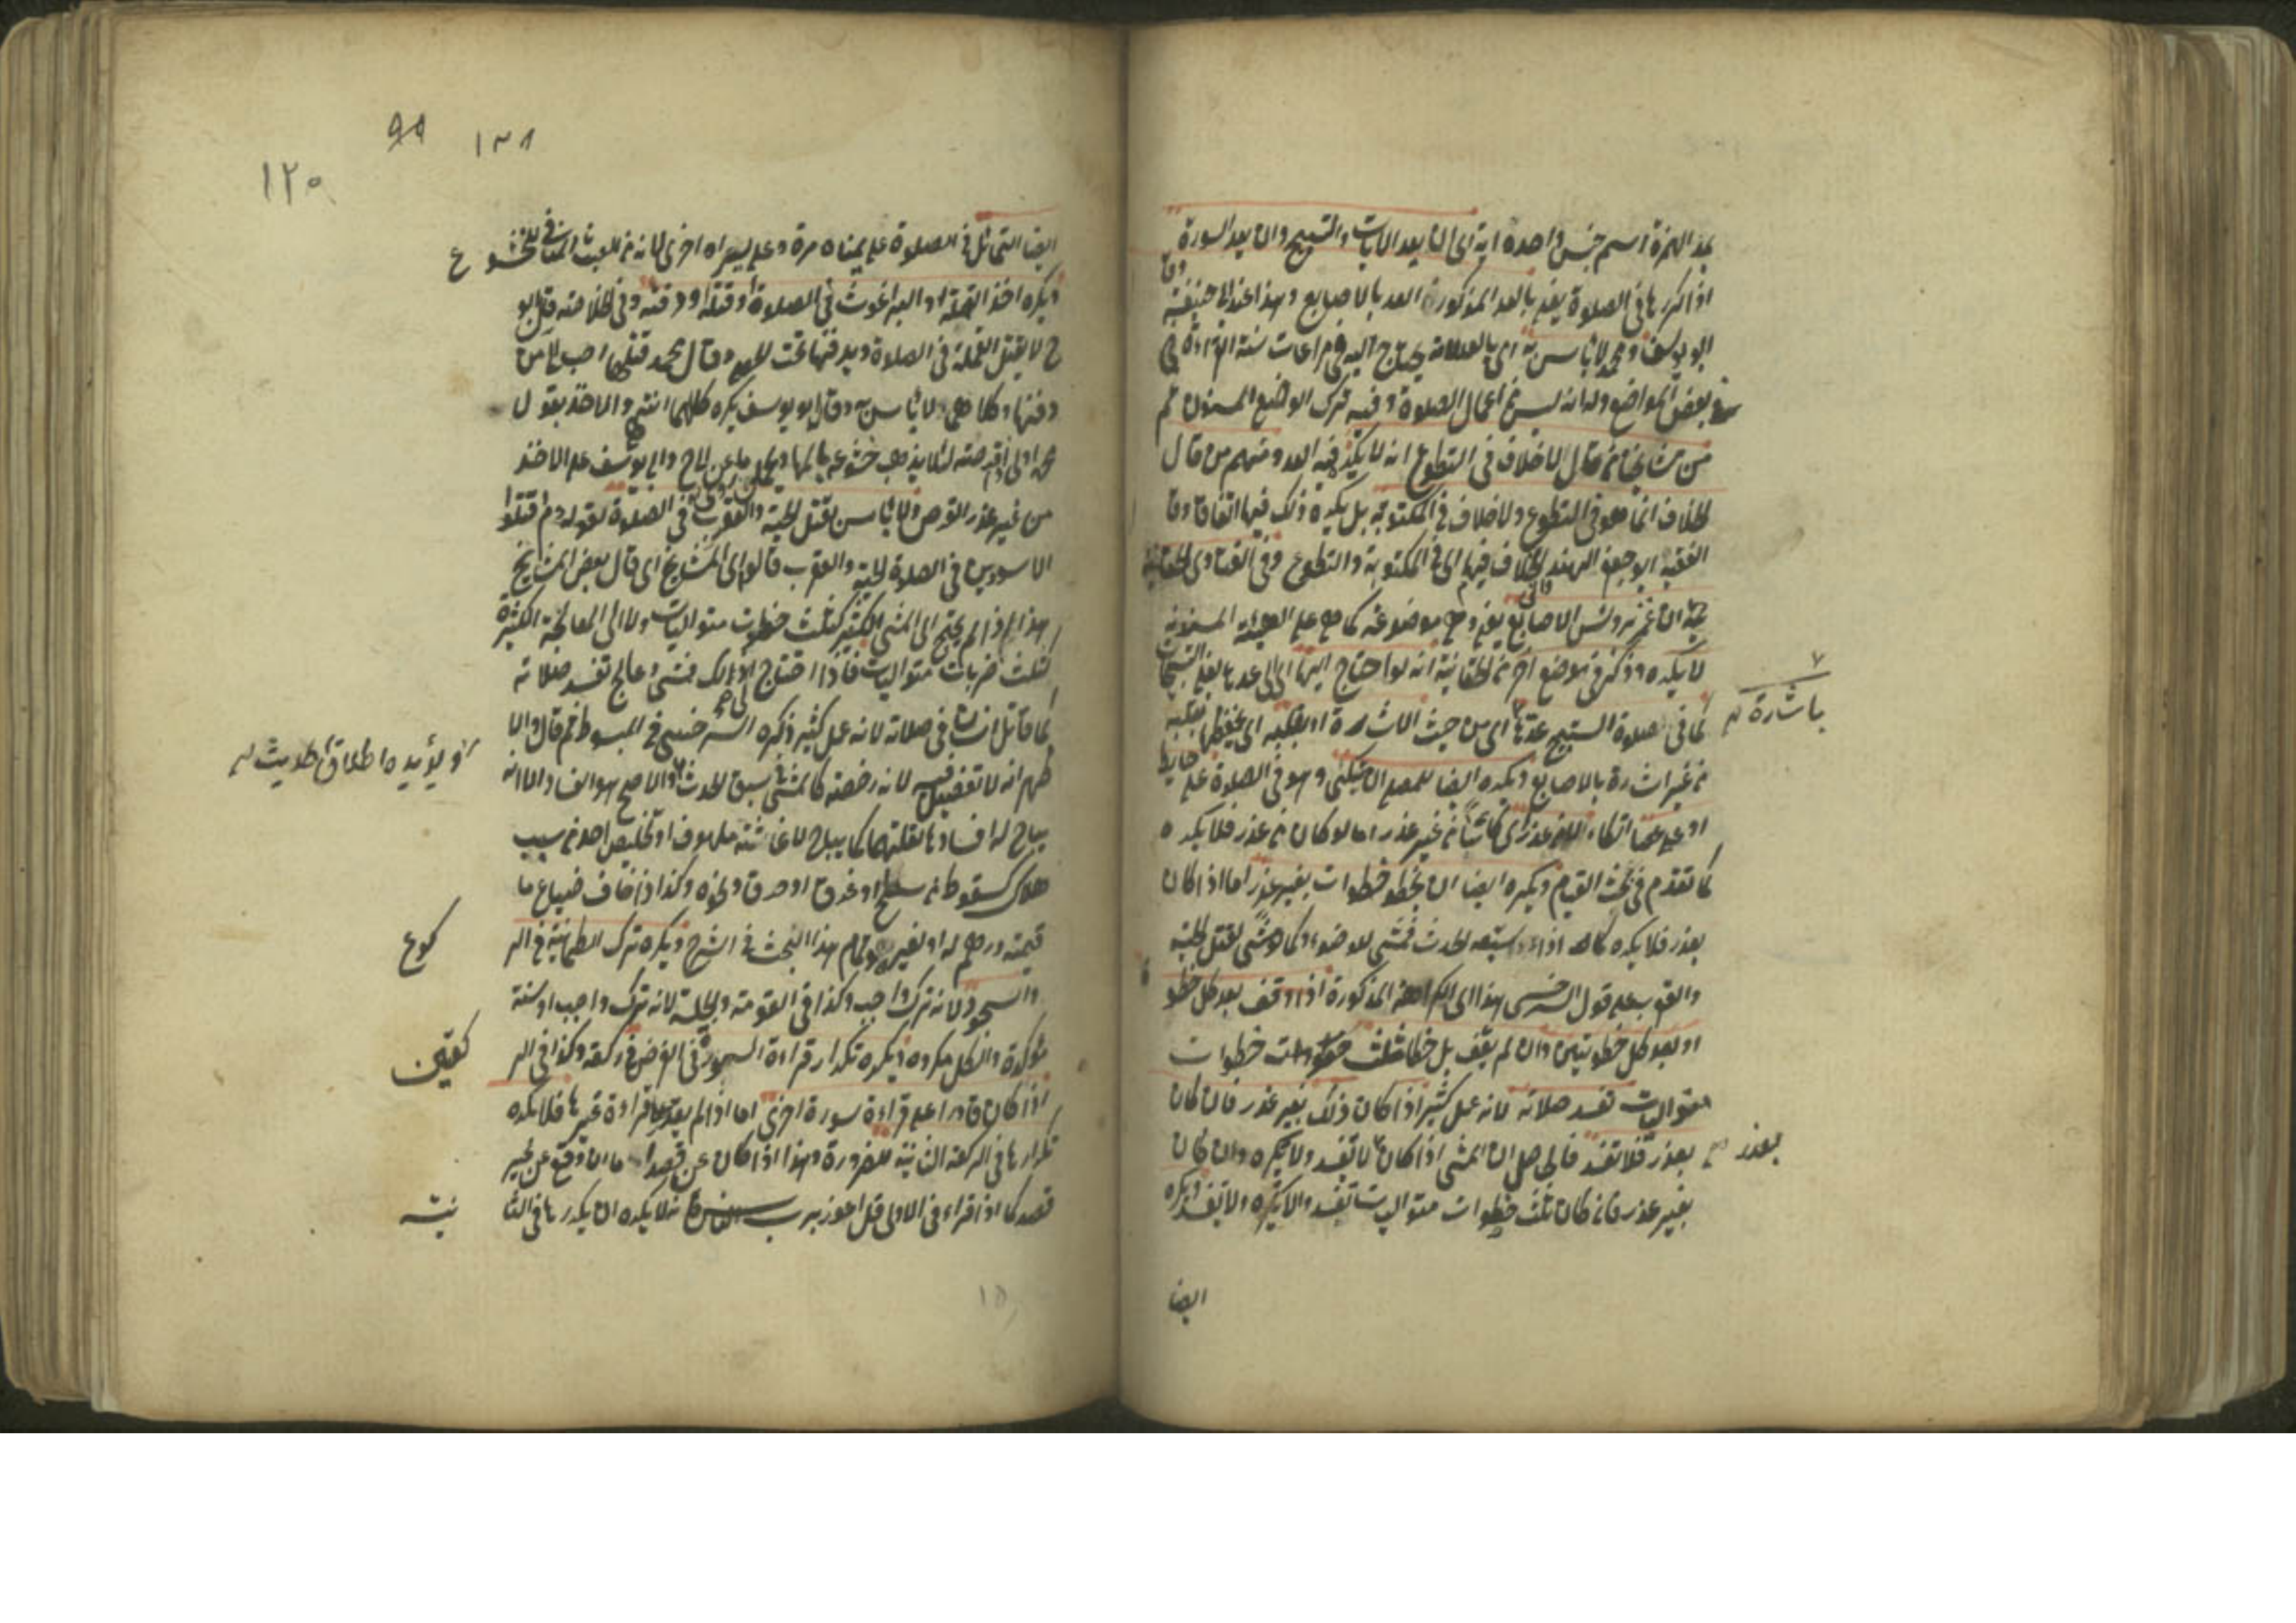 بمد الهمزة اسم جنس واحدة آية اى ان يعد الايات والتسبيح وان يعد السورة
اذا كررها فى الصلوة يعنى بالعد المذكور العد بالاصابع وهذا عند ابى حنيفة وقا
ابو يوسف ومحمد لا باس به اى بالعد لانه يحتاج اليه فى مراعات سنة القراءة فى
بعض المواضع وله انه ليس من اعمال الصلوة وفيه ترك الوضع المسنون ثم
من مشايخنا من قال لا خلاف فى التطوع انه لا يكره فيه العد ومنهم من قال
الخلاف انما هو فى التطوع ولا خلاف فى المكتوبة بل يكره ذلك فيها اتفاقا وقا
الفقيه ابو جعفر الهندوانى الخلاف فيهما اى فى المكتوبة والتطوع وفى الفتاوى الخاقانية
ان غمز برؤس الاصابع يعنى وهى موضوعة كما هى على الهيئة المسنونة
لا يكره وذكر فى موضع آخر من الخاقانية انه لو احتاج اليها اى الى عدها يعنى التسبيحات
كما فى صلوة التسبيح عدها اى من حيث الاشارة او بقلبه اى يحفظها بقلبه
باشارة
من غير اشارة بالاصابع ويكره ايضا للمصلى ان يتكئ وهو فى الصلوة على حايط
او على عصا اتكاء بلا عذر اى كائنا من غير عذر اما لو كان من عذر فلا يكره
كما تقدم فى بحث القيام ويكره ايضا ان يخطو خطوات بغير عذر اما اذا كان
بعذر فلا يكره كما اذا سبقه الحدث فمشى للوضوء وكما لو مشى لقتل الحية
والعقرب على قول السرخسى هذا اى الكراهة المذكورة اذا وقف بعد كل خطو
ة
او بعد كل خطوتين وان لم يقف بل خطا ثلث خطوات
متواليات تفسد صلاته لانه عمل كثير اذا كان ذلك بغير عذر فان كان
بعذر فلا تفسد فالحاصل ان المشى اذا كان لا تفسد ولا يكره وان كان
بعذر
بغير عذر فان كان ثلث خطوات متواليات تفسد والا يكره ولا تفسد ويكره
ايضا
٩٩ ١٣٨
١٢٠
ايضا التمايل فى الصلوة على يمناه مرة وعلى يسراه اخرى لانه من العبث المنافى للخشوع
ويكره اخذ القملة او البراغوث فى الصلوة وقتله ودفنه وفى الخلاصة قال ابو
ح لا يقتل القملة فى الصلوة ويدفنها تحت الحصى وقال محمد قتلها احب الى من
دفنها وكلاهما لا باس به وقال ابو يوسف يكره كلاهما انتهى والاخذ بقول
محمد اولى اذا قرصته لئلا يذهب خشوعه بالمها ويحمل ما عن ابى ح وابى يوسف على الاخذ
من غير عذر القرص ولا باس بقتل الحية والعقرب فى الصلوة لقوله عم اقتلوا
الاسودين فى الصلوة الحية والعقرب قالوا اى المشايخ اى قال بعض المشايخ
هذا اذا لم يحتج الى المشى الكثير كثلث خطوات متواليات ولا الى المعالجة الكثيرة
كثلث ضربات متواليات فاذا احتاج الى ذلك فمشى وعالج تفسد صلاته
كما قاتل انسانا فى صلاته لانه عمل كثير ذكره السرخسى فى المبسوط ثم قال والا
ظهر انه لا تفصيل فيه لانه رخصة كالمشى فى سبق الحدث والاصح هو الفساد الا انه
او يؤيده اطلاق الحديث
يباح له افسادها لقتلهما كما يباح لاغاثة ملهوف او تخليص احد من سبب
هلاك كسقوط من سطح او غرق او حرق ونحوه وكذا اذا خاف ضياع ما
قيمته درهم له او لغيره وتمام هذا البحث فى الشرح ويكره ترك الطمانينة فى الر
كوع
والسجود لانه ترك واجب وكذا فى القومة والجلسة لانه ترك واجب او سنة
مؤكدة والكل مكروه ويكره تكرار قراءة السورة فى الفرض فى ركعة وكذا فى الر
كعتين
اذا كان قادرا على قراءة سورة اخرى اما اذا لم يقدر على قراءة غيرها فلا يكره
تكرارها فى الركعة الثانية للضرورة وهذا اذا كان عن قصد اما ان وقع عن غير
قصد كما اذا قراء فى الاولى قل اعوذ برب الناس فلا يكره ان يكررها فى الثا
نية